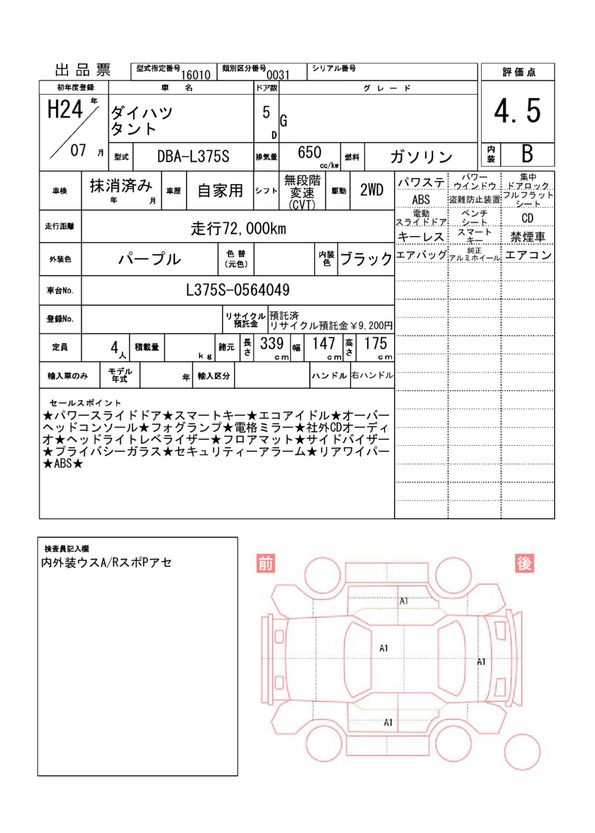 出品票 型式指定番号 16010 類別区分番号 0031 シリアル番号 評価点
初年度登録 車名 ドア数 グレード
H24年 ダイハツ 5 G 4.5
タント D
07月 型式 DBA-L375S 排気量 650 cc/kw 燃料 ガソリン 内装 B
車検 抹消済み 年 月 車歴 自家用 シフト 無段階変速(CVT) 駆動 2WD
パワステ パワーウインドウ 集中ドアロック
ABS 盗難防止装置 フルフラットシート
走行距離 走行72,000km 電動スライドドア ベンチシート CD
キーレス スマートキー 禁煙車
外装色 パープル 色替(元色) 内装色 ブラック エアバッグ 純正アルミホイール エアコン
車台No. L375S-0564049
登録No. リサイクル預託金 預託済
リサイクル預託金¥9,200円
定員 4人 積載量 kg 諸元 長さ 339cm 幅 147cm 高さ 175cm
輸入車のみ モデル年式 年 輸入区分 ハンドル 右ハンドル
セールスポイント
★パワースライドドア★スマートキー★エコアイドル★オーバー
ヘッドコンソール★フォグランプ★電格ミラー★社外CDオーディ
オ★ヘッドライトレベライザー★フロアマット★サイドバイザー
★プライバシーガラス★セキュリティーアラーム★リアワイパー
★ABS★
検査員記入欄
内外装ウスA/RスポPアセ
前 後
A1
A1
A1
A1